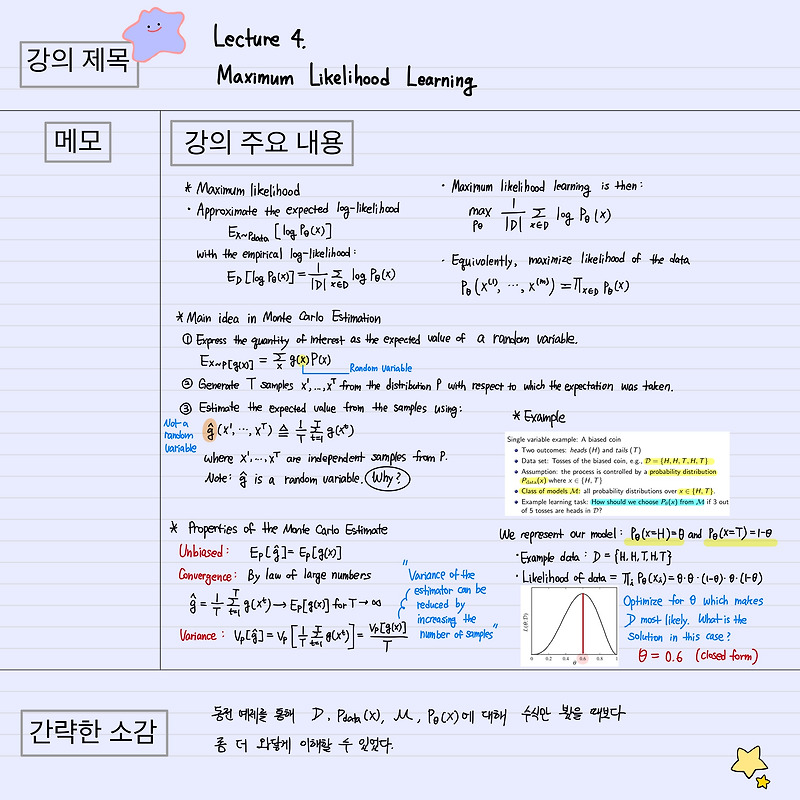 강의 제목
Lecture 4.
Maximum Likelihood Learning
메모
강의 주요 내용
* Maximum likelihood
· Approximate the expected log-likelihood
E_{x~Pdata} [log P_θ(x)]
with the empirical log-likelihood:
E_D [log P_θ(x)] = 1/|D| Σ_{x∈D} log P_θ(x)
· Maximum likelihood learning is then:
max_{P_θ} 1/|D| Σ_{x∈D} log P_θ(x)
· Equivalently, maximize likelihood of the data
P_θ(x^{(1)}, ⋯, x^{(m)}) = Π_{x∈D} P_θ(x)
* Main idea in Monte Carlo Estimation
① Express the quantity of interest as the expected value of a random variable.
E_{x~P}[g(x)] = Σ_x g(x)P(x)
Random Variable
② Generate T samples x¹,...,x^T from the distribution P with respect to which the expectation was taken.
③ Estimate the expected value from the samples using:
Not a random variable
ĝ(x¹, ⋯, x^T) ≜ 1/T Σ_{t=1}^T g(x^t)
where x¹,...,x^T are independent samples from P.
Note: ĝ is a random variable. Why?
* Example
Single variable example: A biased coin
• Two outcomes: heads (H) and tails (T)
• Data set: Tosses of the biased coin, e.g., D = {H, H, T, H, T}
• Assumption: the process is controlled by a probability distribution
P_data(x) where x ∈ {H, T}
• Class of models M: all probability distributions over x ∈ {H, T}.
• Example learning task: How should we choose P_θ(x) from M if 3 out
of 5 tosses are heads in D?
* Properties of the Monte Carlo Estimate
Unbiased: E_P[ĝ] = E_P[g(x)]
Convergence: By law of large numbers
ĝ = 1/T Σ_{t=1}^T g(x^t) → E_P[g(x)] for T → ∞
Variance: V_P[ĝ] = V_P[1/T Σ_{t=1}^T g(x^t)] = V_P[g(x)]/T
"Variance of the
estimator can be
reduced by
increasing the
number of samples"
We represent our model: P_θ(x=H)=θ and P_θ(x=T)=1-θ
· Example data: D = {H, H, T, H, T}
· Likelihood of data = Π_i P_θ(x_i) = θ·θ·(1-θ)·θ·(1-θ)
L(θ;D)
0 0.2 0.4 0.6 0.8 1
θ
Optimize for θ which makes
D most likely. What is the
solution in this case?
θ = 0.6 (closed form)
간략한 소감
동전 예제를 통해 D, Pdata(x), M, P_θ(x)에 대해 수식만 봤을 때보다
좀 더 와닿게 이해할 수 있었다.